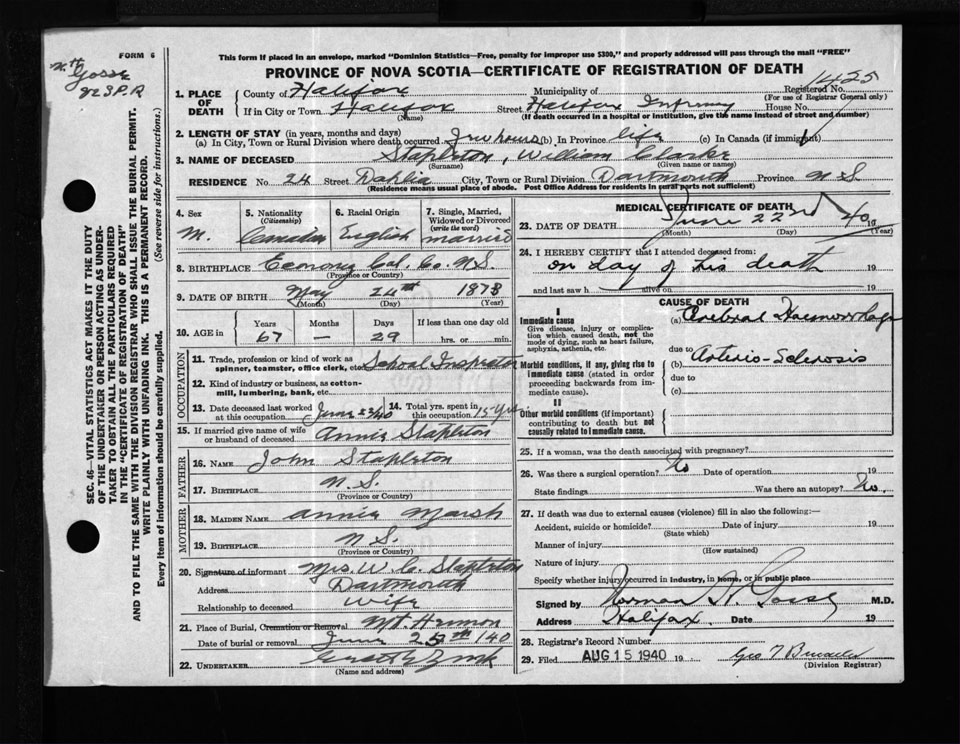 FORM 6
N. H. Gosse
823 P.R
This form if placed in an envelope, marked "Dominion Statistics—Free, penalty for improper use $300," and properly addressed will pass through the mail "FREE"
PROVINCE OF NOVA SCOTIA—CERTIFICATE OF REGISTRATION OF DEATH
SEC. 46—VITAL STATISTICS ACT MAKES IT THE DUTY
OF THE UNDERTAKER OR PERSON ACTING AS UNDER-
TAKER TO OBTAIN ALL THE PARTICULARS REQUIRED
IN THE "CERTIFICATE OF REGISTRATION OF DEATH"
AND TO FILE THE SAME WITH THE DIVISION REGISTRAR WHO SHALL ISSUE THE BURIAL PERMIT.
WRITE PLAINLY WITH UNFADING INK. THIS IS A PERMANENT RECORD.
Every item of information should be carefully supplied. (See reverse side for instructions.)
1. PLACE OF DEATH County of Halifax Municipality of Registered No. 1425
(For use of Registrar General only)
If in City or Town Halifax Street Halifax Infirmary House No.
(Name) (If death occurred in a hospital or institution, give the name instead of street and number)
2. LENGTH OF STAY (in years, months and days)
(a) In City, Town or Rural Division where death occurred few hours (b) in Province life (c) In Canada (if immigrant)
3. NAME OF DECEASED Stapleton, William Clarke
(Surname) (Given name or names)
RESIDENCE No. 24 Street Dahlia City, Town or Rural Division Dartmouth Province N S.
(Residence means usual place of abode. Post Office Address for residents in rural parts not sufficient)
4. Sex
M.
5. Nationality
(Citizenship)
Canadian
6. Racial Origin
English
7. Single, Married,
Widowed or Divorced
(write the word)
married
8. BIRTHPLACE Economy Col. Co. N.S.
(Province or Country)
9. DATE OF BIRTH May 24th 1873
(Month) (Day) (Year)
10. AGE in Years Months Days If less than one day old
67 — 29 hrs. or min.
OCCUPATION
11. Trade, profession or kind of work as
spinner, teamster, office clerk, etc School Inspector
12. Kind of industry or business, as cotton-
mill, lumbering, bank, etc.
13. Date deceased last worked
at this occupation June 23/40
14. Total yrs. spent in
this occupation 15 yrs
15. If married give name of wife
or husband of deceased Annie Stapleton
FATHER
16. NAME John Stapleton
17. BIRTHPLACE N.S.
(Province or Country)
MOTHER
18. MAIDEN NAME Annie Marsh
19. BIRTHPLACE N S.
(Province or Country)
20. Signature of informant Mrs. W. C. Stapleton
Address Dartmouth
Relationship to deceased wife
21. Place of Burial, Cremation or Removal Mt. Hermon
Date of burial or removal June 25th 140
22. UNDERTAKER Zink
(Name and address)
MEDICAL CERTIFICATE OF DEATH
23. DATE OF DEATH June 22nd 40 19
(Month) (Day) (Year)
24. I HEREBY CERTIFY that I attended deceased from:
on day of his death 19
and last saw h alive on 19
CAUSE OF DEATH
I
Immediate cause
Give disease, injury or complica-
tion which caused death, not the
mode of dying, such as heart failure,
asphyxia, asthenia, etc.
(a) Cerebral Haemorrhage
due to
Morbid conditions, if any, giving rise to
immediate cause (stated in order
proceeding backwards from im-
mediate cause).
(b) Arterio-Sclerosis
due to
(c)
II
Other morbid conditions (if important)
contributing to death but not
causally related to immediate cause.
25. If a woman, was the death associated with pregnancy?
26. Was there a surgical operation? No Date of operation 19
State findings Was there an autopsy? No.
27. If death was due to external causes (violence) fill in also the following:—
Accident, suicide or homicide? Date of injury 19
(State which)
Manner of injury
(How sustained)
Nature of injury
Specify whether injury occurred in industry, in home, or in public place
Signed by Norman H. Gosse M.D.
Address Halifax. Date 19
28. Registrar's Record Number
29. Filed AUG 15 1940 19 Geo T
(Division Registrar)